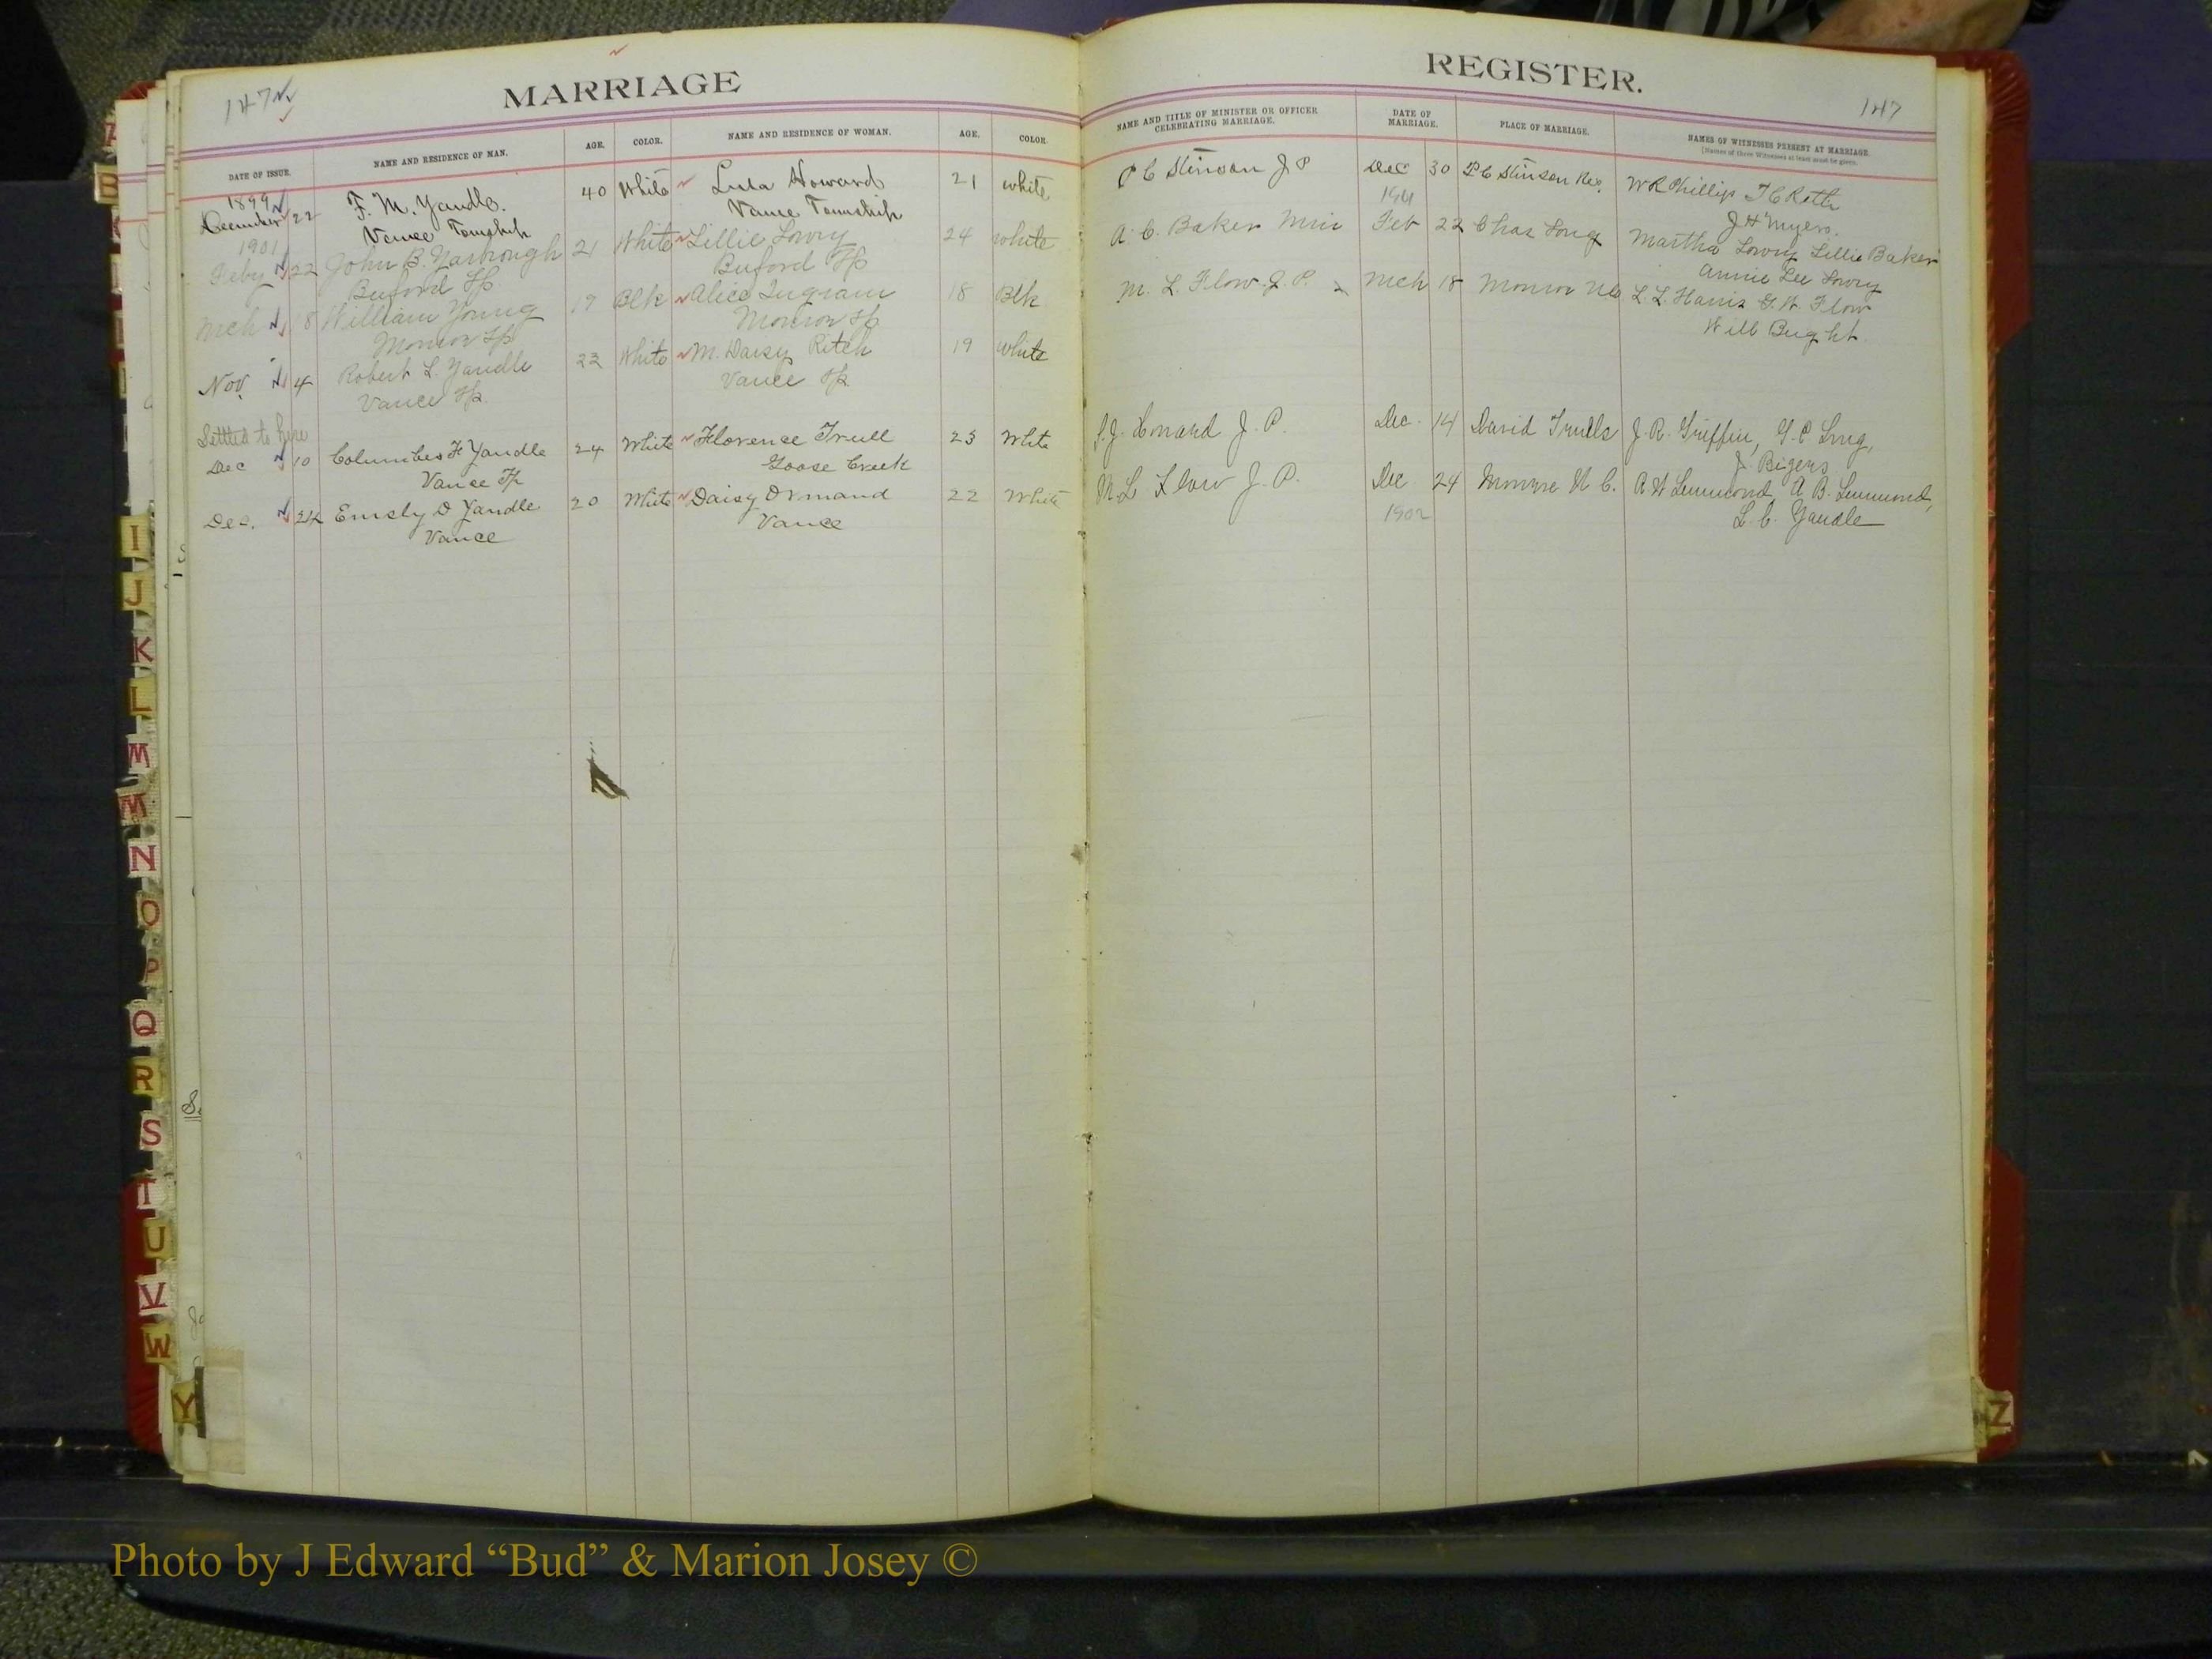 147
MARRIAGE
REGISTER.
147
DATE OF ISSUE.
NAME AND RESIDENCE OF MAN.
AGE.
COLOR.
NAME AND RESIDENCE OF WOMAN.
AGE.
COLOR.
NAME AND TITLE OF MINISTER OR OFFICER
CELEBRATING MARRIAGE.
DATE OF
MARRIAGE.
PLACE OF MARRIAGE.
NAMES OF WITNESSES PRESENT AT MARRIAGE.
[Names of three Witnesses at least must be given.
1899
December 22 F. M. Yandle. 40 White Lula Howard 21 white P C Stinson J P Dec 30 P C Stinson Res. W R Phillips T C Roth
Vance Township Vance Township J H Myers.
1901 1901
Feby 22 John B. Yarbrough 21 White Lillie Lowry 24 white A. C. Baker Min Feb 22 Chas Long Martha Lowry Lillie Baker
Buford Tp Buford Tp Annie Lee Lowry
Mch 18 William Young 19 Blk Alice Ingram 18 Blk M. L. Flow J. P. Mch 18 Monroe NC L. L. Harris G. W. Flow
Monroe Tp Monroe Tp Will
Nov. 4 Robert L. Yandle 23 White M. Daisy Ritch 19 White
Vance Tp. Vance Tp
Settled to here
Dec 10 Columbus H Yandle 24 White Florence Trull 23 White S. J. Howard J. P. Dec. 14 David Trulls J. R. Griffin, G. C Long,
Vance Tp Goose Creek J. Bigers
Dec. 24 Emsly D Yandle 20 White Daisy Ormand 22 White M. L Flow J. P. Dec 24 Monroe N C. A W Lemmond, A B. Lemmond,
Vance Vance 1902 L. C. Yandle
B
I
J
K
L
M
M
N
O
P
Q
R
S
T
U
V
W
Y
Z
Photo by J Edward “Bud” & Marion Josey ©